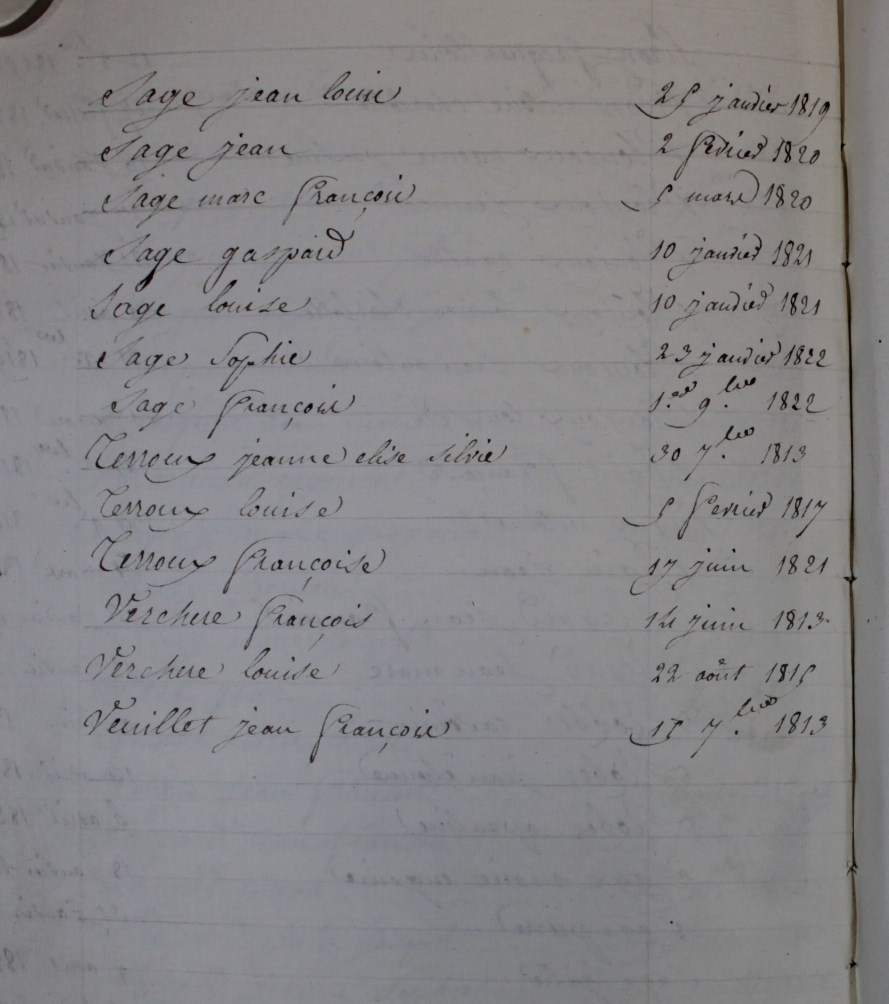 Sage jean louis 25 janvier 1819
Sage jean 2 fevrier 1820
Sage marc françois 5 mars 1820
Sage gaspard 10 janvier 1821
Sage louise 10 janvier 1821
Sage Sophie 23 janvier 1822
Sage françois 1.er 9.bre 1822
Terroux jeanne elise silvie 30 7.bre 1813
Terroux louise 5 fevrier 1817
Terroux françoise 17 juin 1821
Verchere françois 14 juin 1813
Verchere louise 22 août 1815
Venillet jean françois 15 7.bre 1813